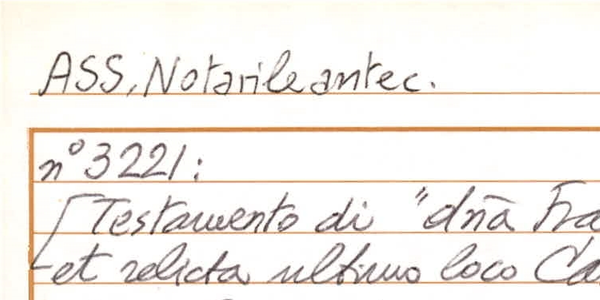 ASS, Notarile antec.
n° 3221:
[Testamento di "dña Fra
et relicta ultimo loco Ca